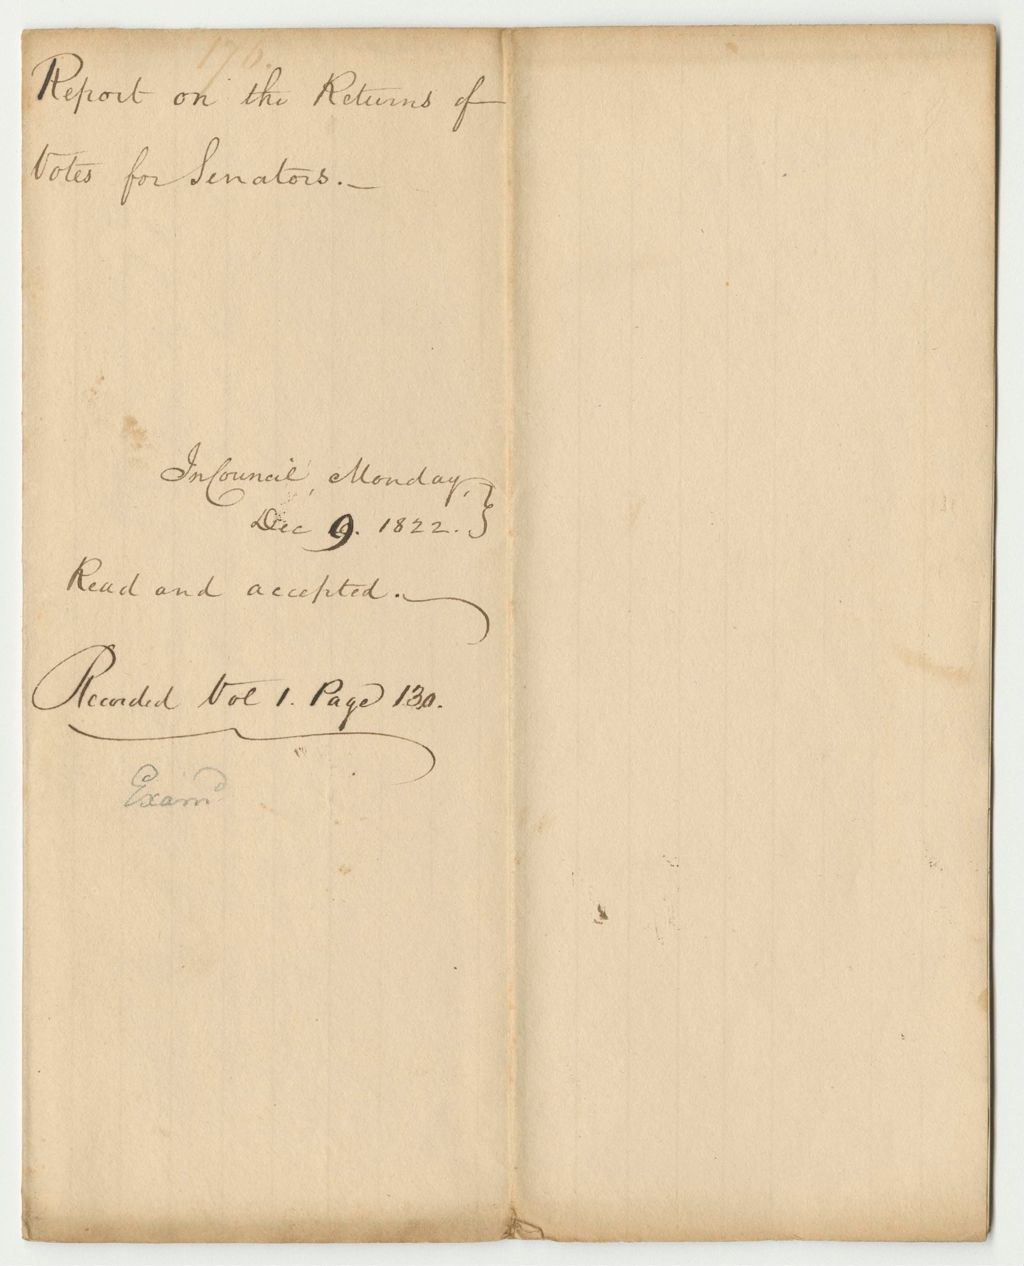 Report on the Returns of
Votes for Senators.—
In Council, Monday,
Dec 9. 1822.
Read and accepted.
Recorded Vol 1. Page 130.
Examd